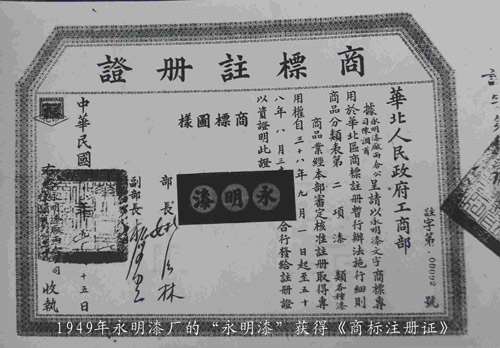 商標註册證
華北人民政府工商部
註字第00072號
據永明漆廠兩合公
司陳調甫呈請以永明漆文字商標專
用於華北區商標註册暫行辦法施行細則
商品分類表第二項漆類各種漆
商品業經本部審定核准註册取得專
用權自三十八年九月一日起至五十
八年八月三
合行發給註册證
以資證明此證
商標圖樣
永明漆
部長
副部長
中華民國
十五日
收執
1949年永明漆厂的“永明漆”获得《商标注册证》